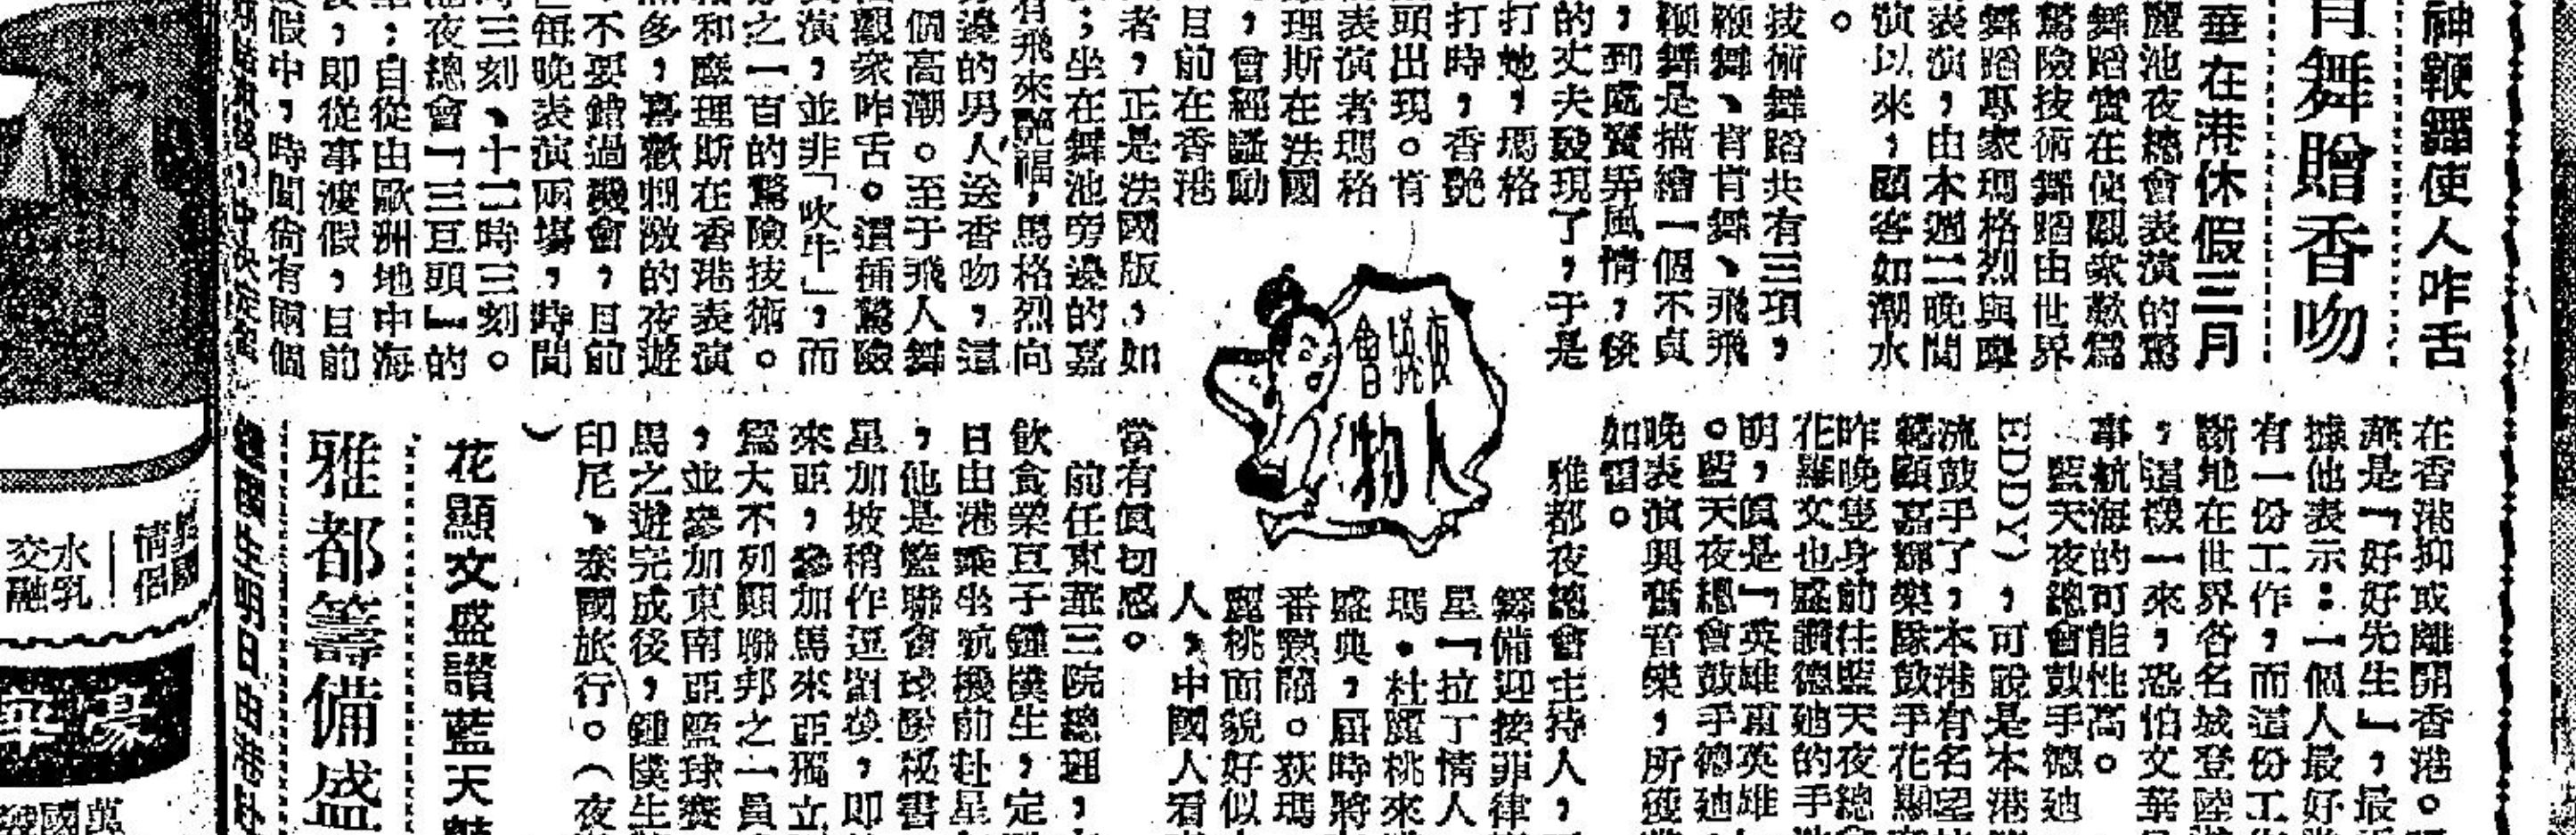 神鞭舞使人咋舌
肯舞贈香吻
華在港休假三月
麗池夜總會表演的驚
舞蹈實在使觀衆歎爲
驚險技術舞蹈由世界
舞蹈專家瑪格烈與摩
表演，由本週二晚間
演以來，顧客如潮水
。
技術舞蹈共有三項，
鞭舞、肯肯舞、飛飛
鞭舞是描繪一個不貞
，到處賣弄風情，後
的丈夫發現了，于是
打她，瑪格
打時，香艷
頭出現。肯
表演者瑪格
理斯在法國
，曾經轟動
目前在香港
者，正是法國版，如
；坐在舞池旁邊的嘉
有飛來艷福，馬格烈向
旁邊的男人送香吻，這
個高潮。至于飛人舞
觀衆咋舌。這種驚險
演，並非「吹牛」，而
之一百的驚險技術。
和摩理斯在香港表演
多，喜歡刺激的夜遊
不要錯過機會，目前
每晚表演兩場，時間
時三刻、十二時三刻。
夜總會「三巨頭」的
，自從由歐洲地中海
，即從事渡假，目前
假中，時間尚有兩個
夜總會
人物
在香港抑或離開香港。
燕是「好好先生」，最
據他表示：一個人最好
有一份工作，而這份工
斷地在世界各名城登陸
，這樣一來，恐怕文華
事航海的可能性高。
藍天夜總會鼓手德廸
EDDY），可說是本港
流鼓手了，本港有名望
範顯嘉輝樂隊鼓手花顯
昨晚隻身前往藍天夜總會
花羅文也盛讚德廸的手
明，眞是「英雄重英雄
。藍天夜總會鼓手德廸
晚表演興奮音樂，所獲
如雷。
雅都夜總會主持人，
籌備迎接菲律
星「拉丁情人
瑪．杜麗桃來
盛典，屆時將
番熱鬧。荻瑪
麗桃面貌好似
人，中國人看
當有眞切感。
前任東華三院總理，
飲食業巨子鍾樸生，定
日由港乘坐航機前赴星
，他是籃聯會球隊秘書
星加坡稍作逗留後，即
來亞，參加馬來亞獨立
爲大不列顛聯邦之一員
，並參加東南亞籃球賽
馬之遊完成後，鍾樸生
印尼、泰國旅行。（夜
）
花顯文盛讚藍天
雅都籌備盛
鍾樸生明日由港赴
情侶
水乳
交融
豪華
萬國